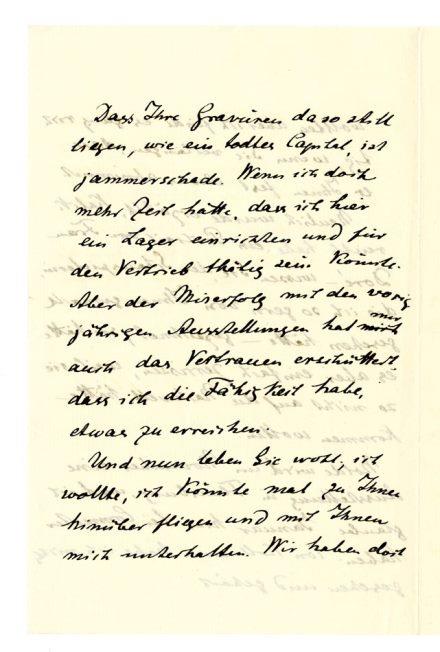 Dass Ihre Gravüren da so still
liegen, wie ein todtes Capital, ist
jammerschade. Wenn ich doch
mehr Zeit hätte, dass ich hier
ein Lager einrichten und für
den Vertrieb thätig sein könnte.
Aber der Miserfolg mit den vorig
jährigen Ausstellungen hat mir
auch das Vertrauen erschüttert,
dass ich die Fähigkeit habe,
etwas zu erreichen.
Und nun leben Sie wohl, ich
wollte, ich könnte mal zu Ihnen
hinüber fliegen und mit Ihnen
mich unterhalten. Wir haben dort